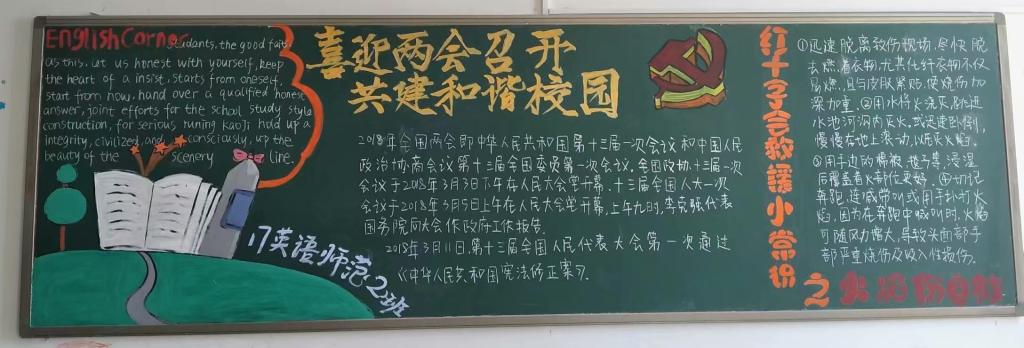 English Corner
students, the good faith
as this. Let us honest with yourself, keep
the heart of a insist, starts from oneself,
start from now, hand over a qualified honest
answer, joint efforts for the school study style
construction, for serious runing kaoji hold up a
integrity, civilized, and consciously, up the
beauty of the scenery line.
17英语师范2班
喜迎两会召开
共建和谐校园
2018年全国两会即中华人民共和国第十三届一次会议和中国人民
政治协商会议第十三届全国委员第一次会议,全国政协十三届一次
会议于2018年3月3日下午在人民大会堂开幕.十三届全国人大一次
会议于2018年3月5日上午在人民大会堂开幕,上午九时,李克强代表
国务院向大会作政府工作报告.
2018年3月11日,第十三届全国人民代表大会第一次通过
《中华人民共和国宪法修正案》.
红十字会救援小常识
之火场
①迅速脱离致伤现场,尽快脱
去燃着衣物,尤其化纤衣物不仅
易燃,且与皮肤紧贴,使烧伤加
深加重.②用水将火浇灭,跳进
水池河沟内灭火,或迅速卧倒,
慢慢在地上滚动,以压灭火焰.
③用手边的棉被、毯子等,浸湿
后覆盖着火部位更好.④切记
奔跑,连喊带叫或用手扑打火
焰,因为在奔跑中喊叫时,火焰
可随风力增大,导致头面部手
部严重烧伤及吸入性损伤.